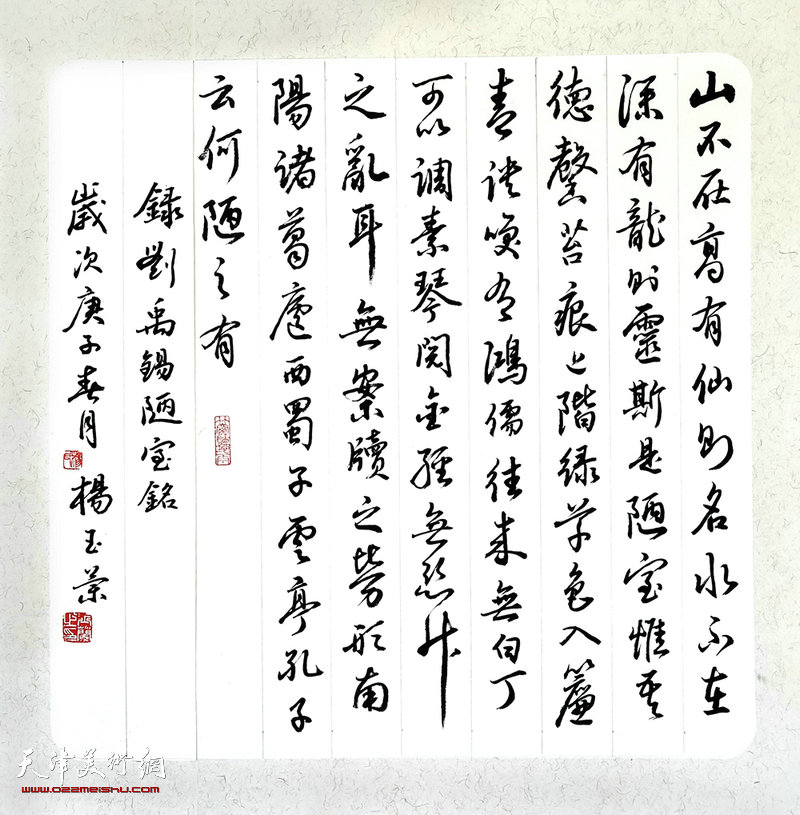 山不在高有仙則名水不在
深有龍則靈斯是陋室惟吾
德馨苔痕上階綠草色入簾
青談笑有鴻儒往來無白丁
可以調素琴閱金經無絲竹
之亂耳無案牘之勞形南
陽諸葛廬西蜀子雲亭孔子
云何陋之有
錄劉禹錫陋室銘
歲次庚子春月楊玉榮
天津美術網
www.022meishu.com